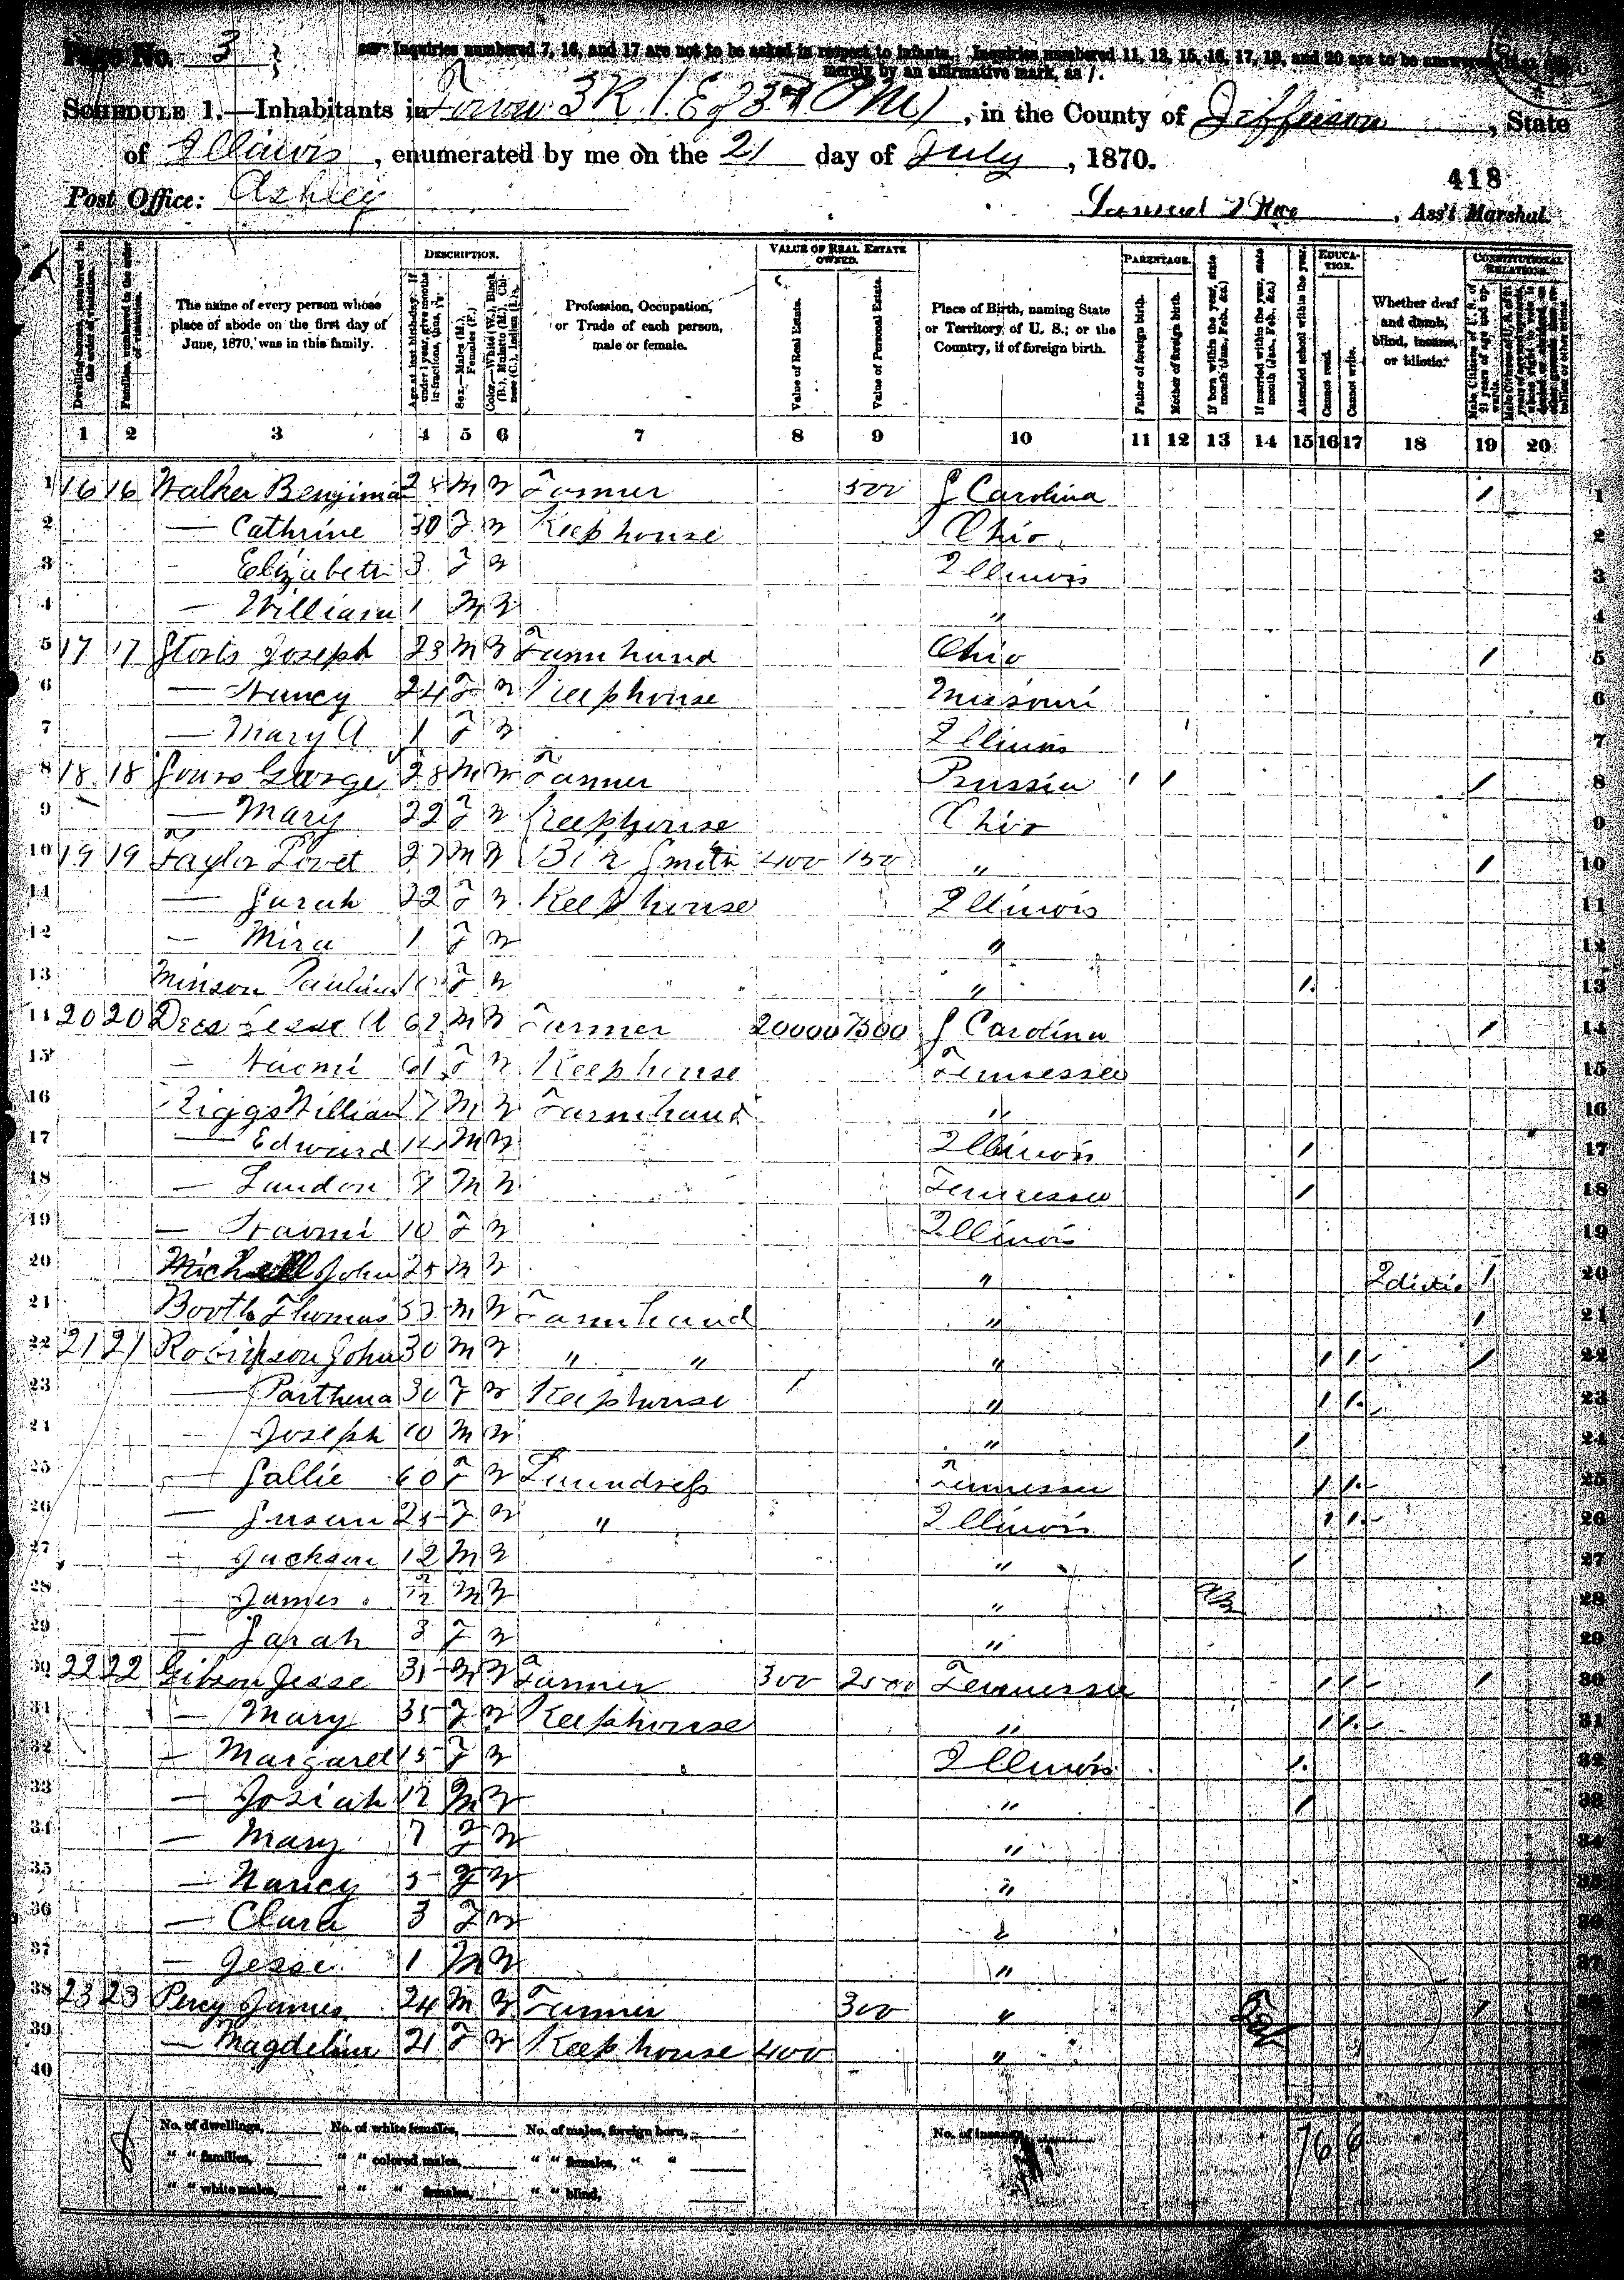 Page No. 3
Inquiries numbered 7, 16, and 17 are not to be asked in respect to infants. Inquiries numbered 11, 12, 15, 16, 17, 19, and 20 are to be answered
merely by an affirmative mark, as /.
SCHEDULE 1.—Inhabitants in Town 3 R 1 E of 3rd P M, in the County of Jefferson, State
of Illinois, enumerated by me on the 21 day of July, 1870.
418
Post Office: Ashley
Samuel T , Ass't Marshal.
Dwelling-houses, numbered in the order of visitation.
Families, numbered in the order of visitation.
The name of every person whose place of abode on the first day of June, 1870, was in this family.
DESCRIPTION.
Age at last birth-day. If under 1 year, give months in fractions, thus,
Sex.—Males (M.), Females (F.)
Color.—White (W.), Black (B.), Mulatto (M.), Chinese (C.), Indian (I.)
Profession, Occupation, or Trade of each person, male or female.
VALUE OF REAL ESTATE OWNED.
Value of Real Estate.
Value of Personal Estate.
Place of Birth, naming State or Territory of U. S.; or the Country, if of foreign birth.
PARENTAGE.
Father of foreign birth.
Mother of foreign birth.
If born within the year, state month (Jan., Feb., &c.)
If married within the year, state month (Jan., Feb., &c.)
Attended school within the year.
EDUCATION.
Cannot read.
Cannot write.
Whether deaf and dumb, blind, insane, or idiotic.
CONSTITUTIONAL RELATIONS.
Male Citizens of U. S. of 21 years of age and upwards.
1 2 3 4 5 6 7 8 9 10 11 12 13 14 15 16 17 18 19 20
1 16 16 Walker Benjima 28 M W Farmer 500 S Carolina / 1
2 — Cathrine 30 F W Keep house Ohio 2
3 - Elizabeth 3 F W Illinois 3
4 — William 1 M W " 4
5 17 17 Storts Joseph 23 M W Farm hand Ohio / 5
6 — Nancy 24 F W Keep house Missouri 6
7 — Mary A 1 F W Illinois 7
8 18 18 George 28 M W Farmer Prussia / / / 8
9 — Mary 22 F W Keep house Ohio 9
10 19 19 Taylor Lovet 27 M W Bl k Smith 400 150 " / 10
11 — Sarah 22 F W Keep house Illinois 11
12 — Mira 1 F W " 12
13 Minson Paulina F W " / 13
14 20 20 Dees Jesse A 62 M W Farmer 20000 7500 S Carolina / 14
15 — Naomi 61 F W Keep house Tennessee 15
16 Riggs William 17 M W Farm hand " 16
17 — Edward 14 M W Illinois / 17
18 — Landon M W Tennessee / 18
19 — Naomi 10 F W Illinois 19
20 John 25 M W " Idiotic / 20
21 Booth Thomas 53 M W Farm hand " / 21
22 21 21 Robinson John 30 M W " " " / / / 22
23 — Parthena 30 F W Keep house " / / 23
24 - Joseph 10 M W " / 24
25 — Sallie 60 F W Laundress Tennessee / / 25
26 — Susan 25 F W " Illinois / / 26
27 — Jackson 12 M W " / 27
28 — James M W " 28
29 — Sarah 3 F W " 29
30 22 22 Gibson Jesse 35 M W Farmer 300 2500 Tennessee / / / 30
31 — Mary 35 F W Keep house " / / 31
32 — Margaret 15 F W Illinois / 32
33 — Josiah 12 M W " / 33
34 — Mary 7 F W " 34
35 — Nancy 5 F W " 35
36 — Clara 3 F W " 36
37 — Jesse 1 M W " 37
38 23 23 Percy James 24 M W Farmer 300 " Feb / 38
39 — Magdeline 21 F W Keep house 400 " 39
40
No. of dwellings, No. of white females, No. of males, foreign born, No. of insane,
" " families, " " colored males, " " females, " "
" " white males, " " " females, " " blind,
8 7 6 6